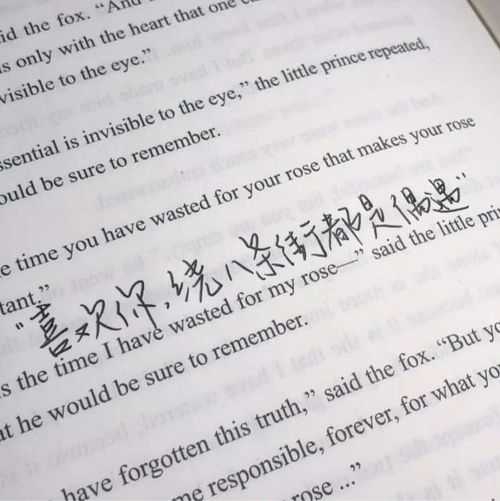 id the fox. "And
s only with the heart that one
visible to the eye."
ssential is invisible to the eye," the little prince repeated,
ould be sure to remember.
e time you have wasted for your rose that makes your rose
tant."
"喜欢你,绕八条街都是偶遇"
s the time I have wasted for my rose—" said the little prin
at he would be sure to remember.
have forgotten this truth," said the fox. "But yo
me responsible, forever, for what you
rose ..."